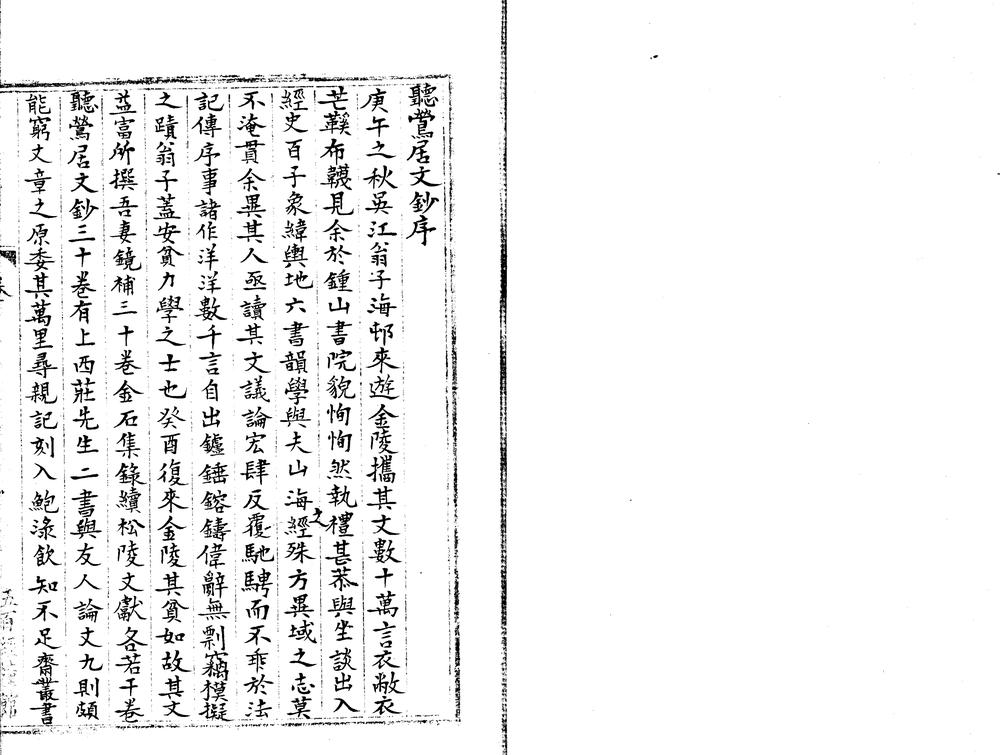 聽鶯居文鈔序
庚午之秋吳江翁子海邨來遊金陵攜其文數十萬言衣敝衣
芒鞵布韈見余於鍾山書院貌恂恂然執禮甚恭與坐談出入
經史百子象緯輿地六書韻學與夫山海經之殊方異域之志莫
不淹貫余異其人亟讀其文議論宏肆反覆馳騁而不乖於法
記傳序事諸作洋洋數千言自出鑪錘鎔鑄偉辭無剽竊模擬
之蹟翁子蓋安貧力學之士也癸酉復來金陵其貧如故其文
益富所撰吾妻鏡補三十卷金石集錄續松陵文獻各若干卷
聽鶯居文鈔三十卷有上西莊先生二書與友人論文九則頗
能窮文章之原委其萬里尋親記刻入鮑淥飲知不足齋叢書